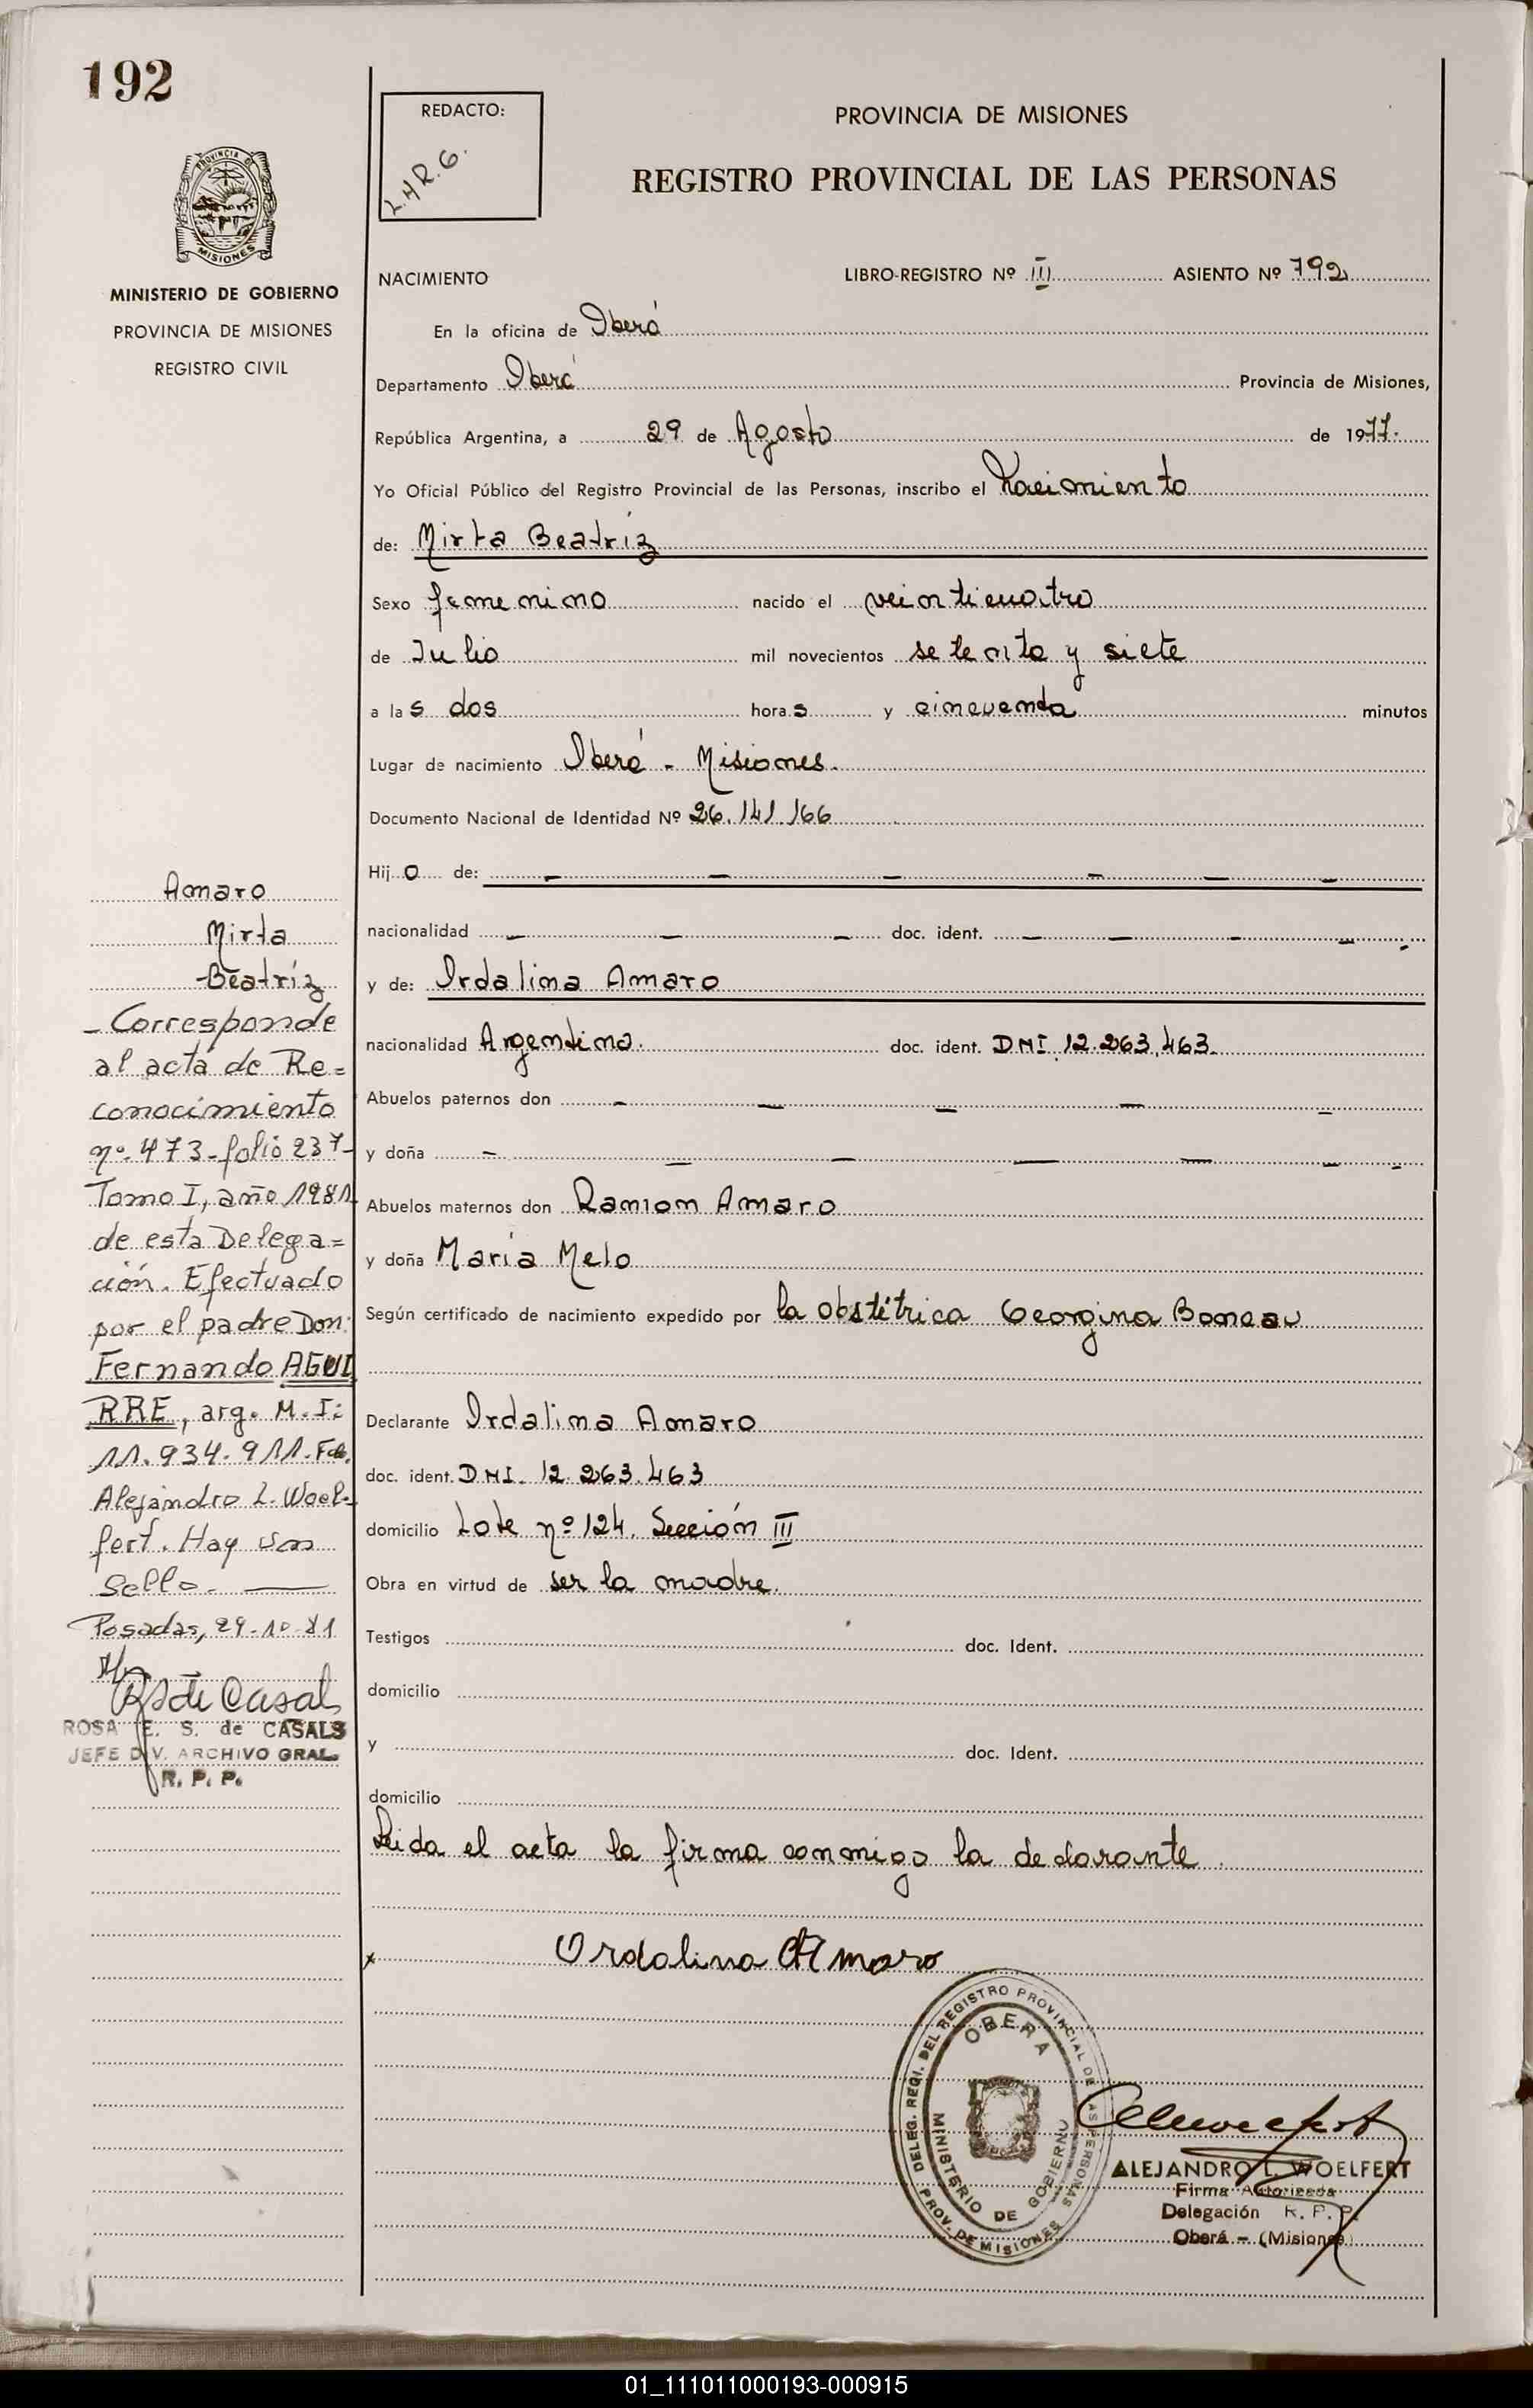 192
REDACTO:
L.H.R.G.
PROVINCIA DE MISIONES
REGISTRO PROVINCIAL DE LAS PERSONAS
PROVINCIA DE
MISIONES
MINISTERIO DE GOBIERNO
PROVINCIA DE MISIONES
REGISTRO CIVIL
NACIMIENTO LIBRO-REGISTRO Nº III ASIENTO Nº 792
En la oficina de Oberá
Departamento Oberá Provincia de Misiones,
República Argentina, a 29 de Agosto de 1977.
Yo Oficial Público del Registro Provincial de las Personas, inscribo el Nacimiento
de: Mirta Beatríz
Sexo femenino nacido el veinticuatro
de Julio mil novecientos setenta y siete
a las dos horas y cincuenta minutos
Lugar de nacimiento Oberá - Misiones.
Documento Nacional de Identidad Nº 26.141.166
Hijo de: - - - - - -
nacionalidad - - - doc. ident. - - - - -
y de: Irdalina Amaro
nacionalidad Argentina. doc. ident. DNI. 12.263.463.
Abuelos paternos don - - - - -
y doña - - - - - - -
Abuelos maternos don Ramon Amaro
y doña María Melo
Según certificado de nacimiento expedido por la obstétrica Georgina Boneau
Declarante Irdalina Amaro
doc. ident. DNI. 12.263.463
domicilio Lote nº 124. Sección III
Obra en virtud de ser la madre.
Testigos doc. Ident.
domicilio
y doc. Ident.
domicilio
Leida el acta la firma conmigo la declarante.
x Ordalina Amaro
Amaro
Mirta
Beatríz
- Corresponde
al acta de Re=
conocimiento
nº. 473-folio 237-
Tomo I, año 1981
de esta Delega=
ción. Efectuado
por el padre Don:
Fernando AGUI
RRE, arg. M.I:
11.934.911. Fdo.
Alejandro L. Woel-
fert. Hay un
Sello.
Posadas, 29-10-81
ROSA E. S. de CASALS
JEFE DIV. ARCHIVO GRAL.
R. P. P.
DELEG. REGI. DEL REGISTRO PROVINCIAL DE LAS PERSONAS
OBERA
MINISTERIO DE GOBIERNO
PROV. DE MISIONES
ALEJANDRO L. WOELFERT
Firma Autorizada
Delegación R. P. P.
Oberá - (Misiones)
01_111011000193-000915